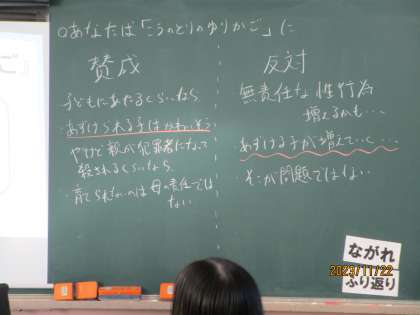 ○あなたは「こうのとりのゆりかご」に
賛成
子どもにあたるくらいなら
あずけられる子はかわいそう
やけど親が犯罪者になって
殺されるくらいなら
・育てられないのは母の責任では
ない
反対
無責任な性行為
増えるかも…
あずける子が増えていく…
・そこが問題ではない
ながれ
ふり返り
2023/11/22